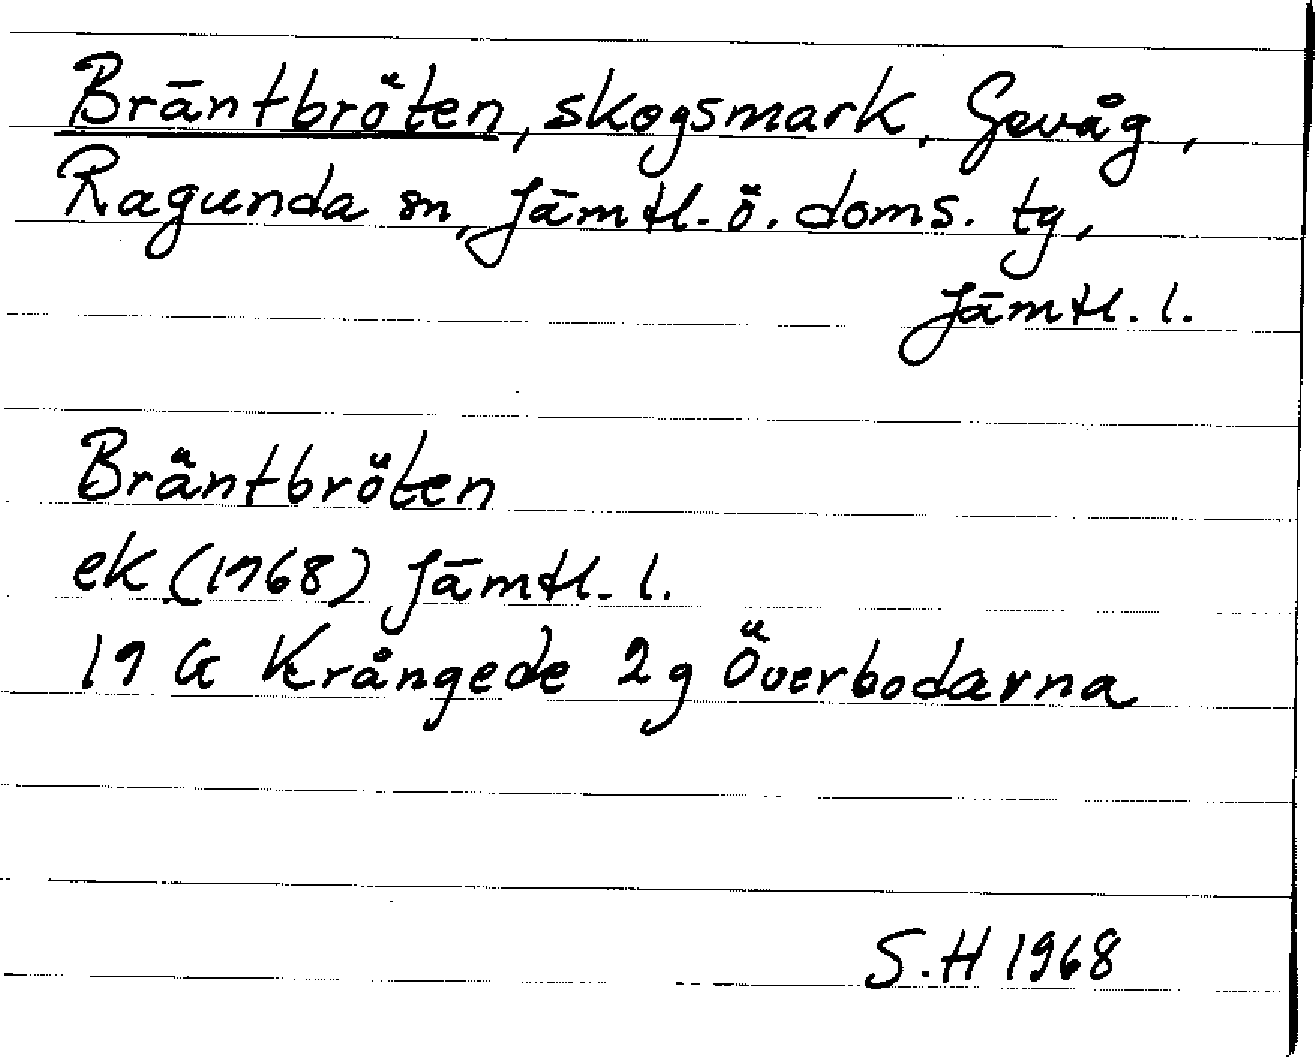 Bräntbröten, skogsmark, Gevåg,
Ragunda sn, Jämtl. ö. doms. tg,
Jämtl. l.
Bräntbröten
ek (1968) Jämtl. l.
19 G Krångede 2g Överbodarna
S.H 1968